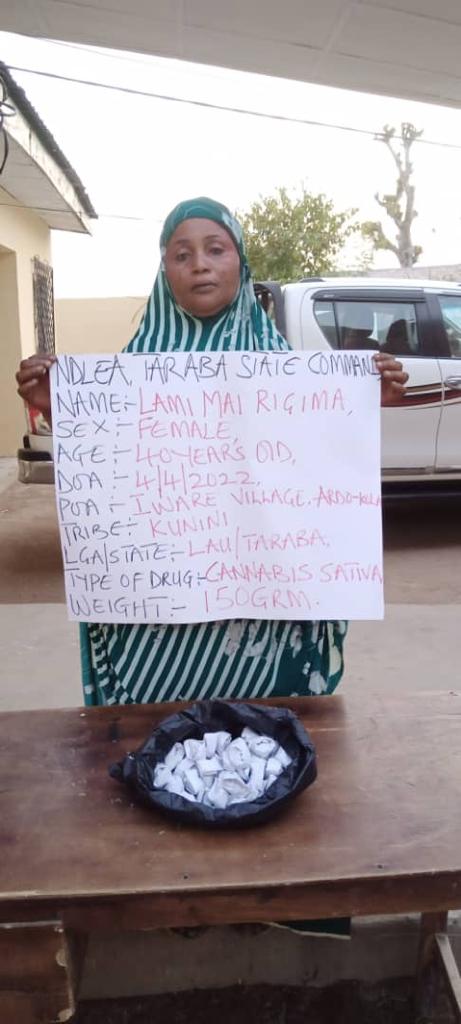 NDLEA, TARABA STATE COMMAND,
NAME:- LAMI MAI RIGIMA,
SEX:- FEMALE,
AGE:- 40YEAR'S OlD,
DOA:- 4/4/2022,
POA:- IWARE VILLAGE, ARDO-KOLA
TRIBE:- KUNINI
LGA/STATE:- LAU/TARABA,
TYPE OF DRUG:- CANNABIS SATIVA
WEIGHT:- 150GRM.